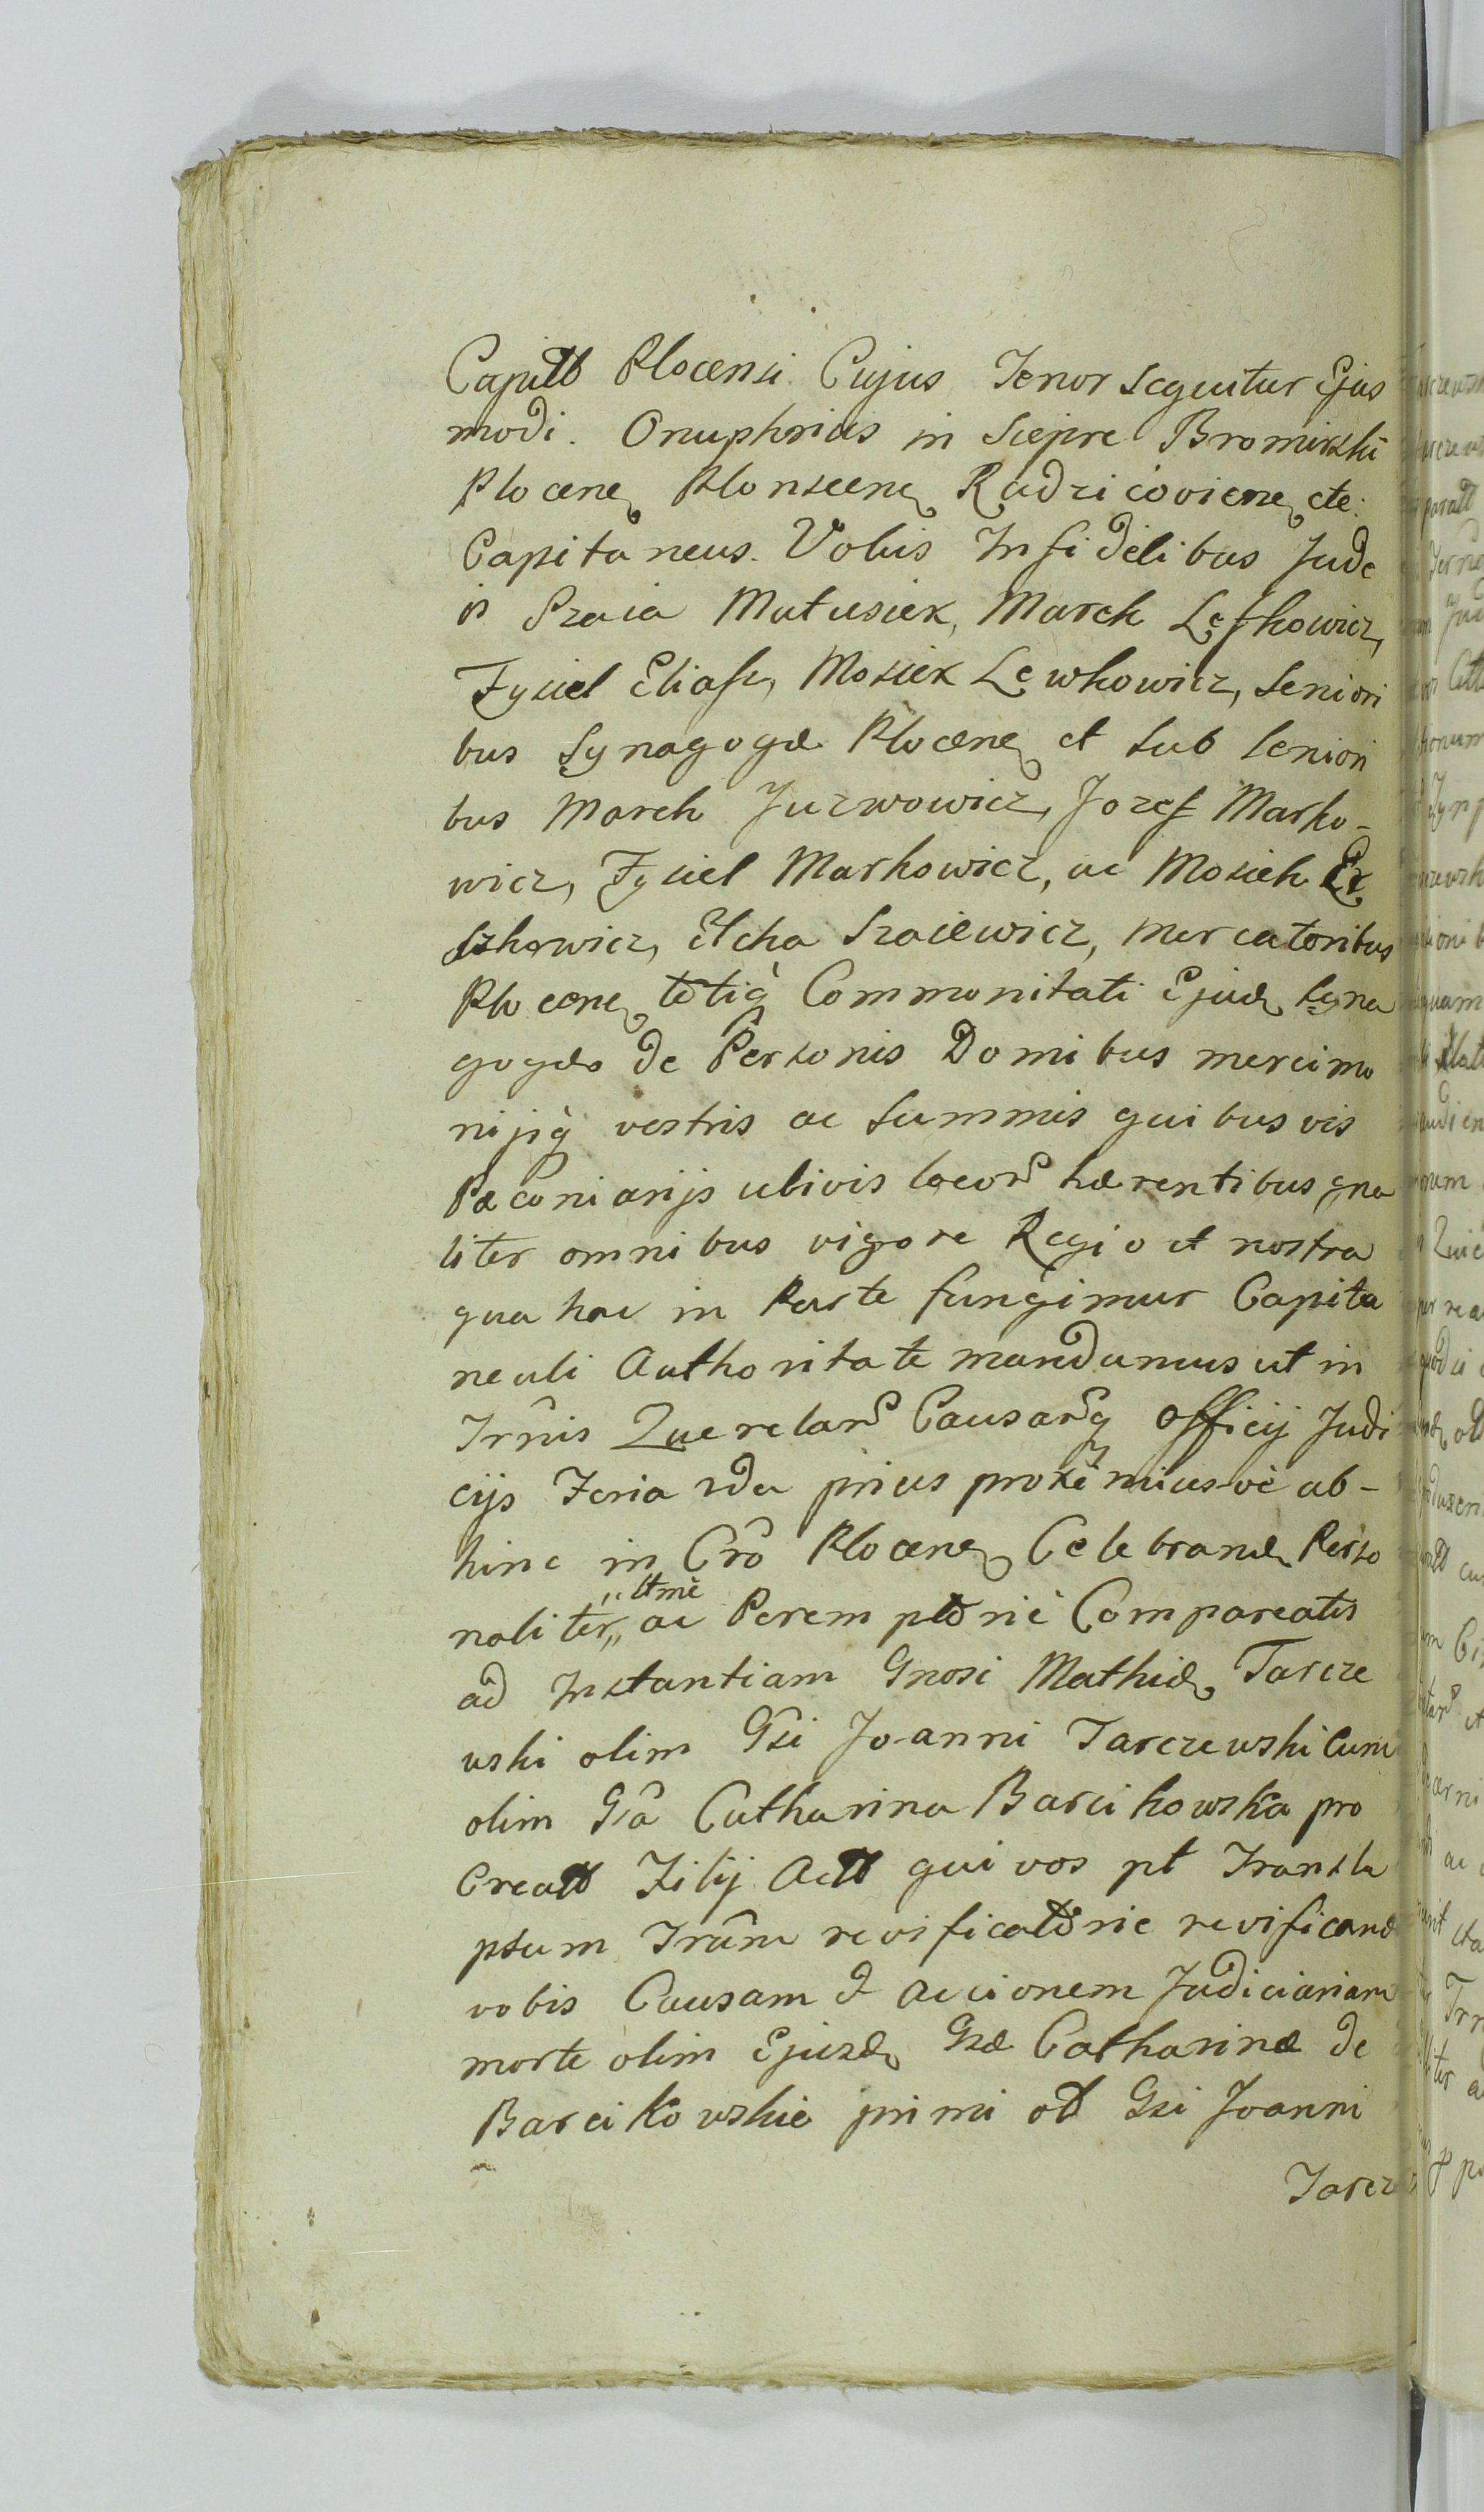 Capitt Plocensi. Cujus Tenor Sequitur Ejus
modi. Onuphrius in Sieprc Bromirski
Plocenē Plonscenē Radzicovienē etc:
Capitaneus. Vobis Infidelibus Jude
is Szaia Matusiek, Marek Leskowicz,
Fysiel Eliasz, Mosiek Lewkowicz, Seniori
bus Synagogæ Plocenē et Sub Seniori
bus Marek Juzwowicz, Jozef Marko-
wicz, Fysiel Markowicz, ac Mosiek
Szkowicz, Elcha Szaiewicz, Mercatoribus
Plocenē totiq̀ Commonitati Ejusdē Syna
gogæ de Personis Domibus mercimo
nijsq̀ vestris ac Summis quibusvis
Pæconiarijs ubivis locorū hærentibus gna
liter omnibus vigore Regio et nostra
qua hac in Parte fungimur Capita
neali Authoritate mandamus ut in
Trm̃is Querelarū Causarūq Officij Judi
cijs Feria 2da prius proximius-ve ab-
hinc in Crõ Plocenē Celebrandē Perso
naliter,, ,,lttmè ac Peremptõriè Compareatis
ad Instantiam Gnosi Mathiæ Tarcze
wski olim Gsi Joanni Tarczewski cum
olim Gsã Catharina Barcikowska pro
Creatt Filij Actt qui vos pt Transla
psum Trm̃m revificatõrie revificandē
vobis Causam & accionem Judiciariam
morte olim Ejusdē Gsæ Catharinæ de
Barcikowskie primi ott Gsi Joanni
Tarcze